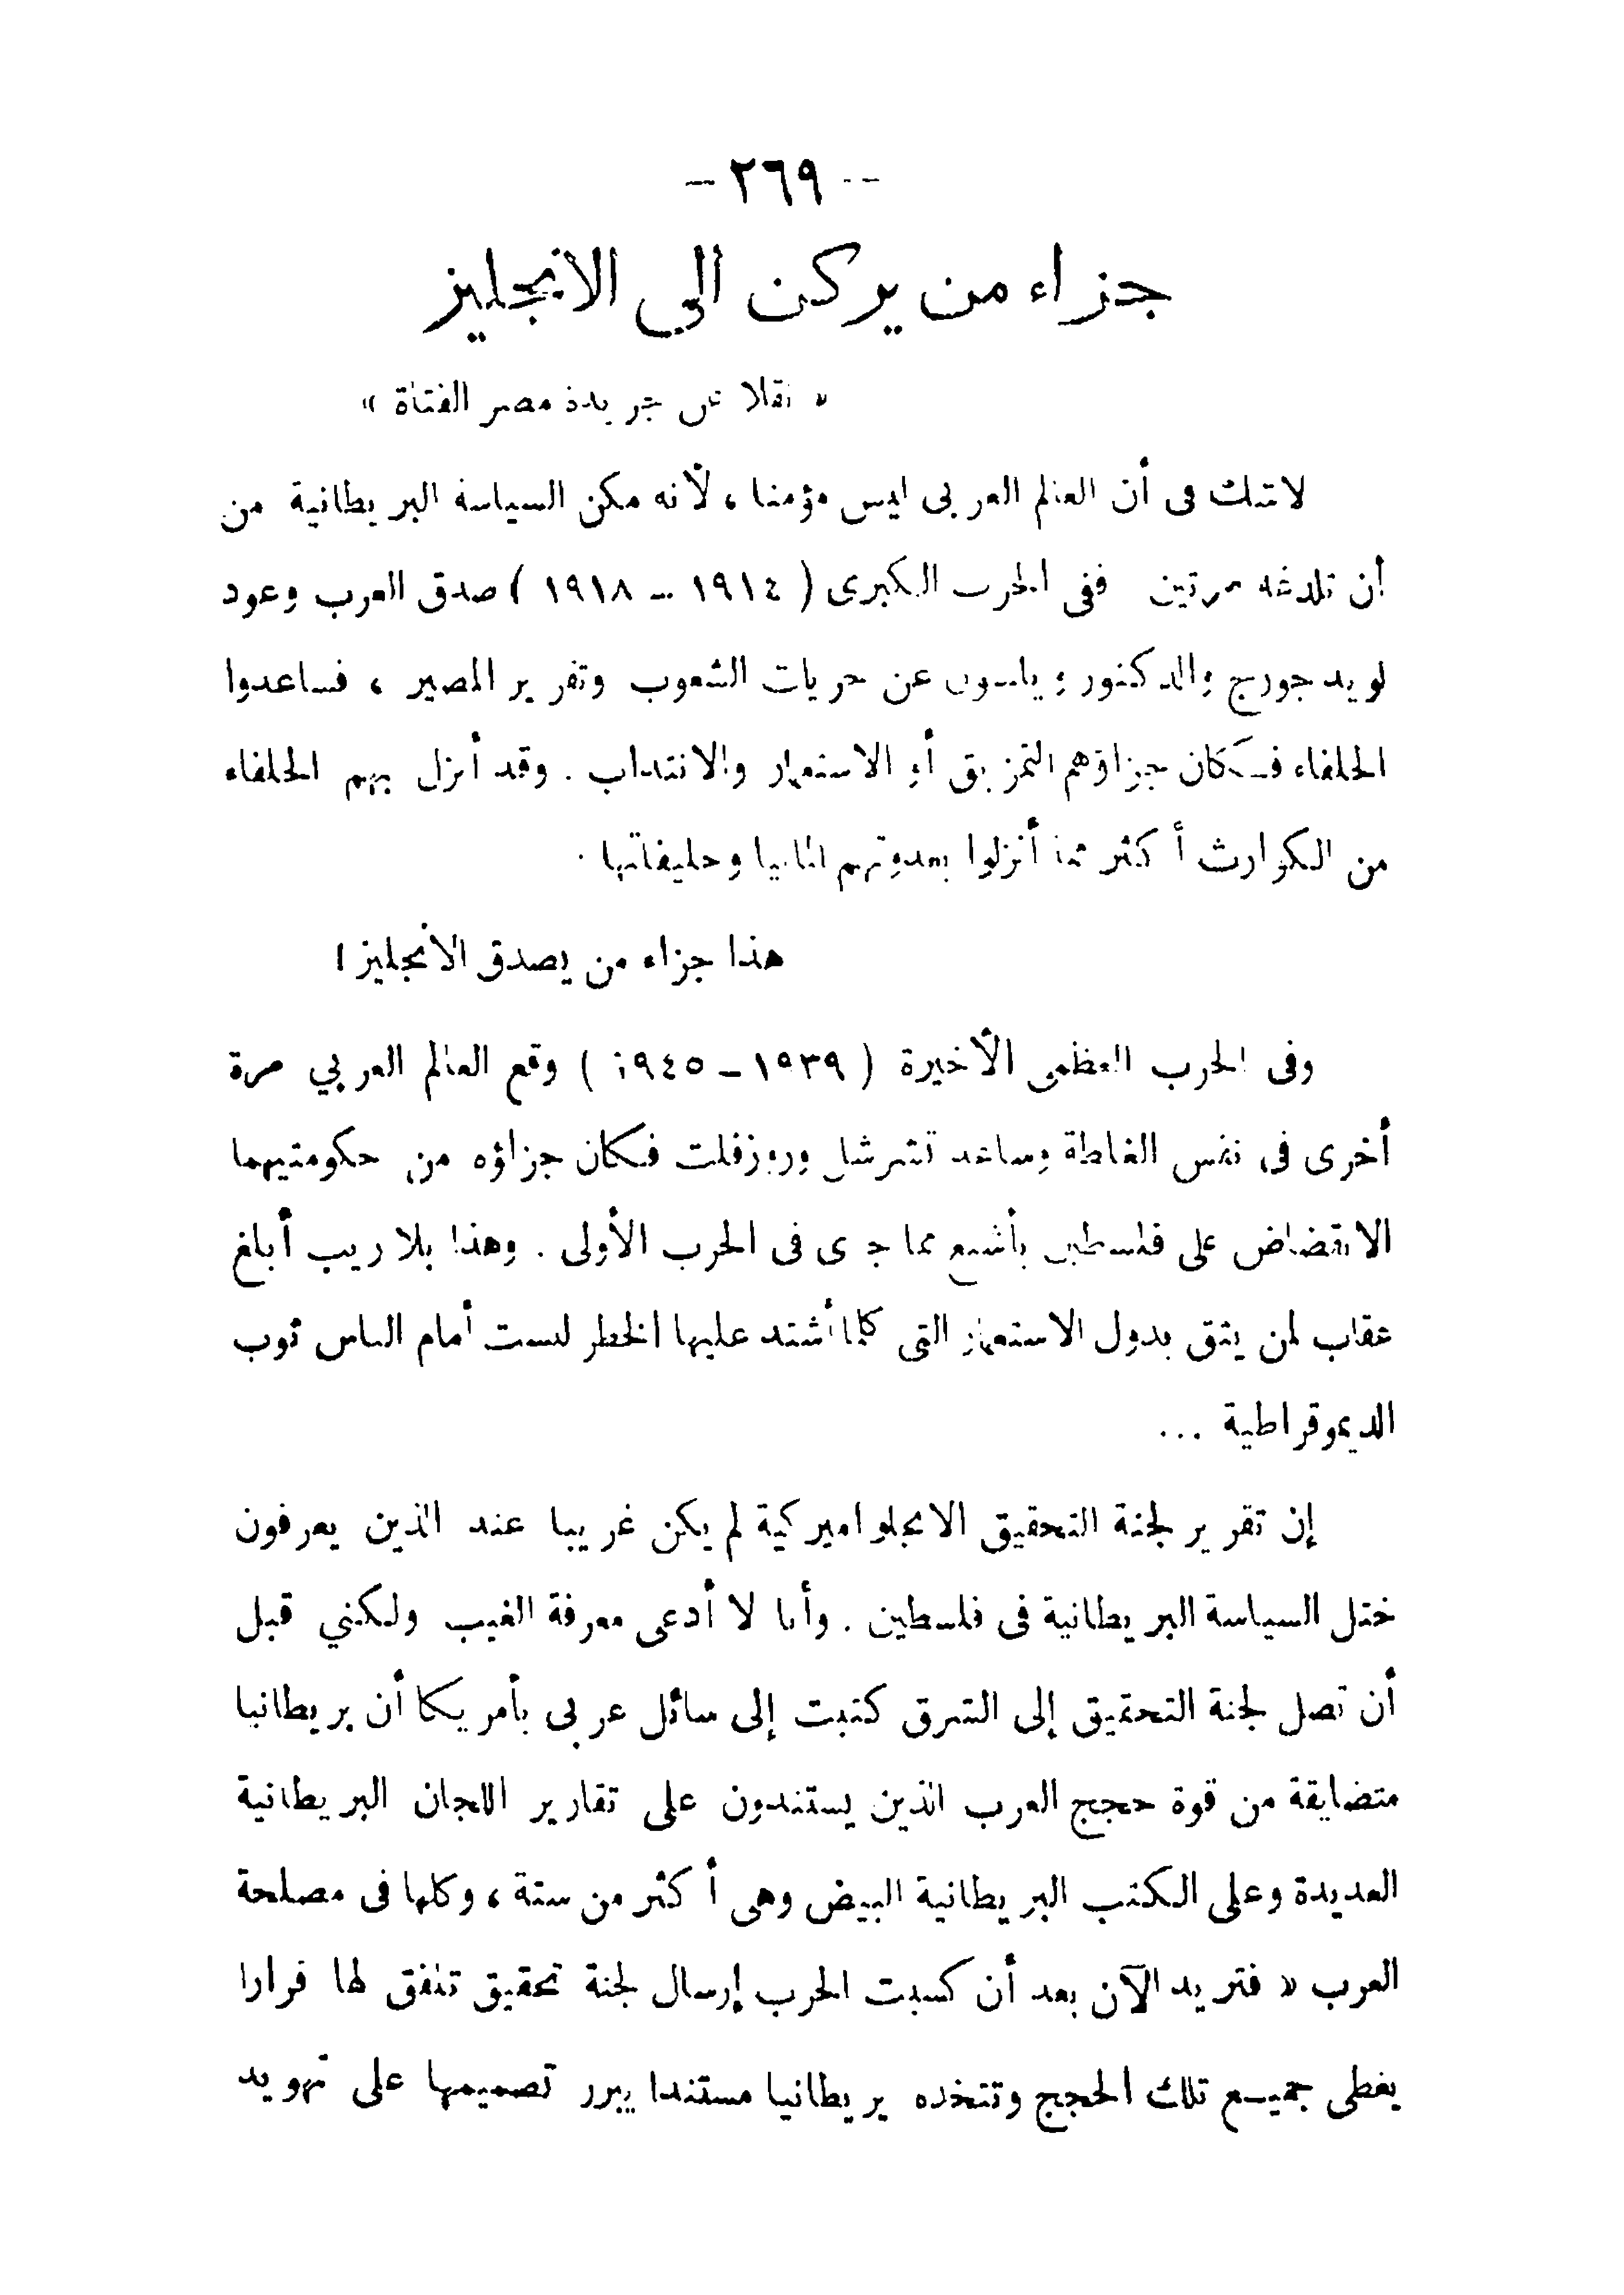 - ٢٦٩ -
جزاء من يركن الى الانجليز
« نقلا عن جريدة مصر الفتاة »
لاشك فى أن العالم العربى ليس مؤمنا ، لأنه مكن السياسة البريطانية من
أن تلدغه مرتين ففى الحرب الكبرى ( ١٩١٤ - ١٩١٨ ) صدق العرب وعود
لويد جورج والدكتور ويلسون عن حريات الشعوب وتقرير المصير ، فساعدوا
الحلفاء فكان جزاؤهم التمزيق أو الاستعمار والانتداب . وقد أنزل بهم الحلفاء
من الكوارث أكثر مما أنزلوا بعدوتهم المانيا وحليفاتها .
هذا جزاء من يصدق الأنجليز !
وفى الحرب العظمى الأخيرة ( ١٩٣٩ - ١٩٤٥ ) وقع العالم العربي مرة
أخرى فى نفس الغلطة وساعد تشرشل وروزفلت فكان جزاؤه من حكومتيهما
الانقضاض على فلسطين بأشبع مما جرى فى الحرب الأولى . وهذا بلا ريب أبلغ
عقاب لمن يثق بدول الاستعمار التى كلما أشتد عليها الخطر لبست أمام الناس ثوب
الديموقراطية ...
إن تقرير لجنة التحقيق الانجلو اميركية لم يكن غريبا عند الذين يعرفون
ختل السياسة البريطانية فى فلسطين . وأنا لا أدعى معرفة الغيب ولكنني قبل
أن تصل لجنة التحقيق إلى الشرق كتبت إلى سائل عربى بأمريكا أن بريطانيا
متضايقة من قوة حجج العرب الذين يستندون على تقارير اللجان البريطانية
العديدة وعلى الكتب البريطانية البيض وهى أكثر من ستة ، وكلها فى مصلحة
العرب « فتريد الآن بعد أن كسبت الحرب إرسال لجنة تحقيق تلفق لها قرارا
يغطى جميع تلك الحجج وتتخذه بريطانيا مستندا يبرر تصميمها على تهويد